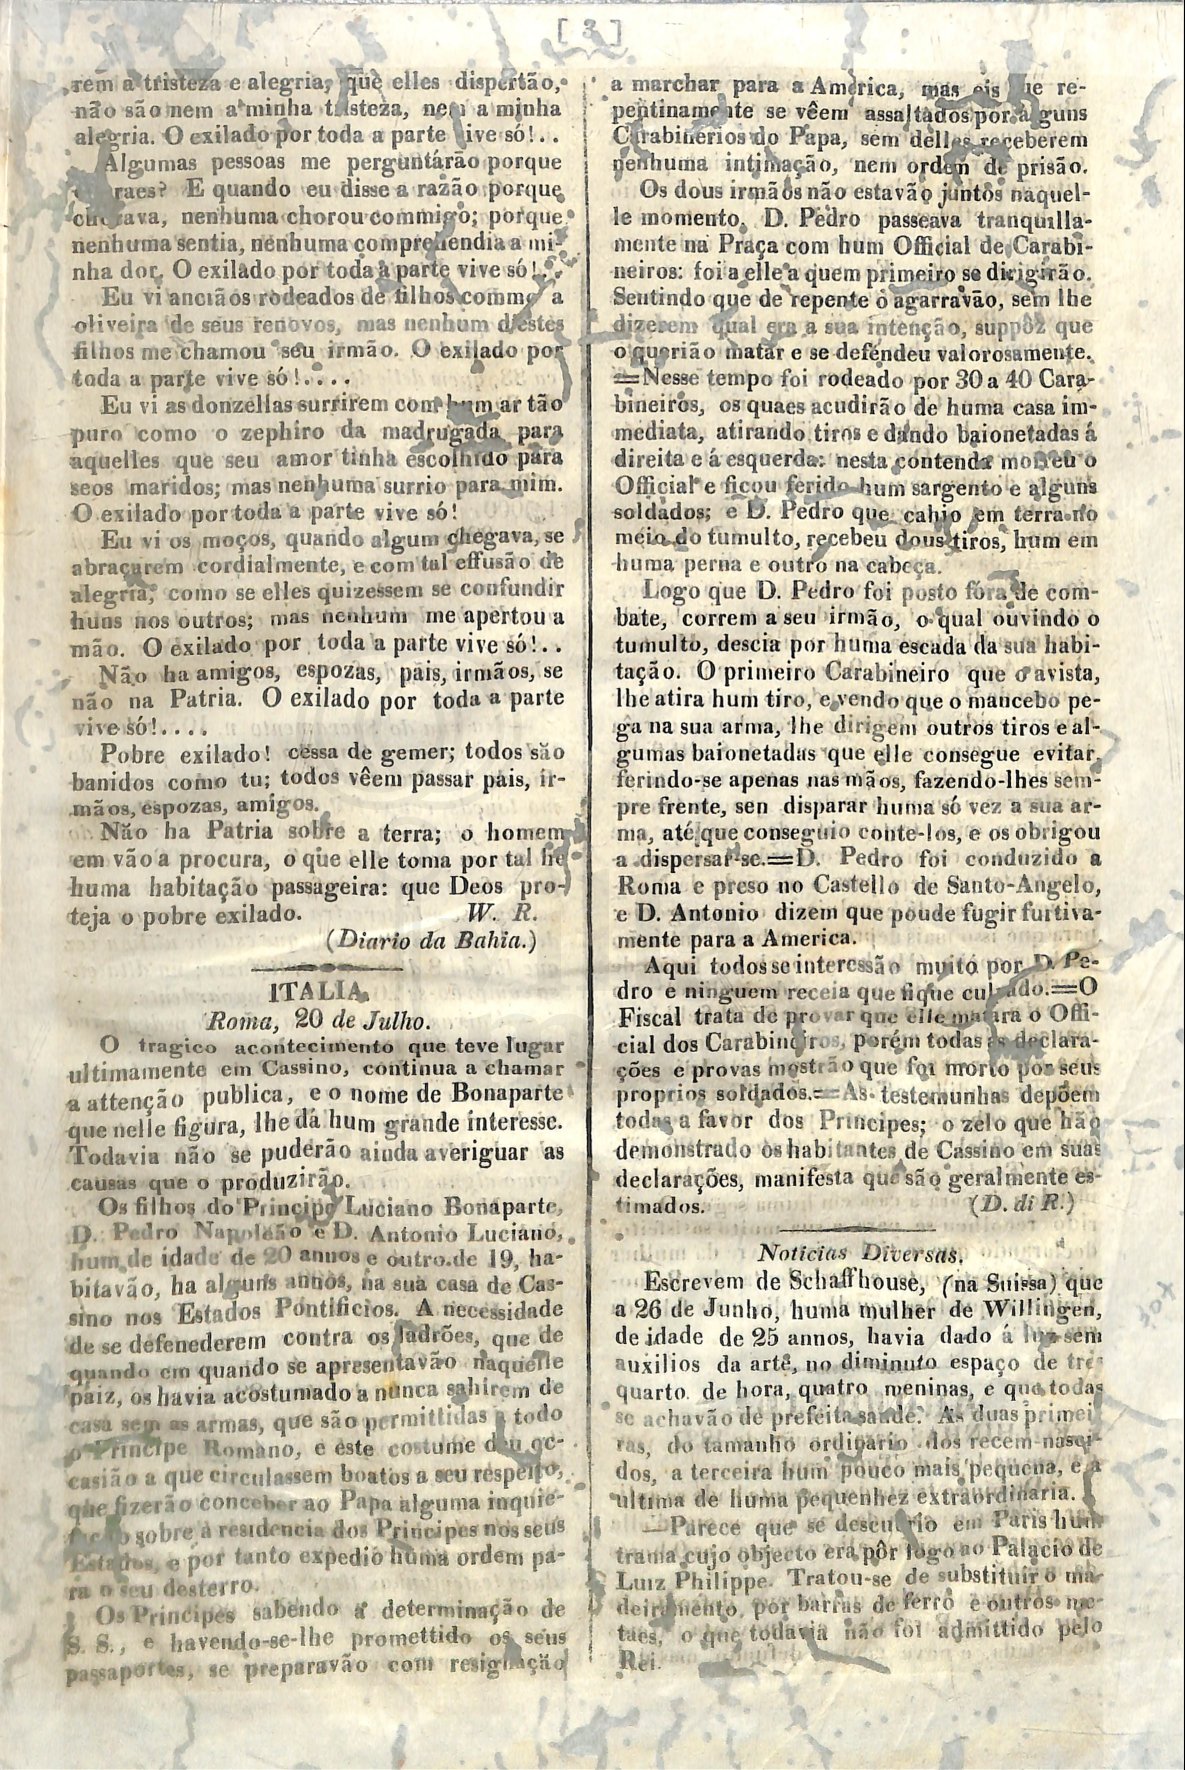 [ 3 ]
rem a tristeza e alegria, que elles dispertão,
não são nem a minha tristeza, nem a minha
alegria. O exilado por toda a parte vive só!..
Algumas pessoas me perguntárão porque
E quando eu disse a razão porque
chorava, nenhuma chorou commigo; porque
nenhuma sentia, nenhuma comprehendia a mi-
nha dor. O exilado por toda a parte vive só!..
Eu vi anciãos rodeados de filhos commo a
oliveira de seus renovos, mas nenhum d'estes
filhos me chamou seu irmão. O exilado por
toda a parte vive só!....
Eu vi as donzellas surrirem com hum ar tão
puro como o zephiro da madrugada para
aquelles que seu amor tinha escolhido para
seos maridos; mas nenhuma surrio para mim.
O exilado por toda a parte vive só!
Eu vi os moços, quando algum chegava, se
abraçarem cordialmente, e com tal effusão de
alegria, como se elles quizessem se confundir
huns nos outros; mas nenhum me apertou a
mão. O exilado por toda a parte vive só!..
Não ha amigos, espozas, pais, irmãos, se
não na Patria. O exilado por toda a parte
vive só!....
Pobre exilado! cessa de gemer; todos são
banidos como tu; todos vêem passar pais, ir-
mãos, espozas, amigos.
Não ha Patria sobre a terra; o homem
em vão a procura, o que elle toma por tal he
huma habitação passageira: que Deos pro-
teja o pobre exilado. W. R.
(Diario da Bahia.)
ITALIA.
Roma, 20 de Julho.
O tragico acontecimento que teve lugar
ultimamente em Cassino, continua a chamar
a attenção publica, e o nome de Bonaparte
que nelle figura, lhe dá hum grande interesse.
Todavia não se puderão ainda averiguar as
causas que o produzirão.
Os filhos do Principe Luciano Bonaparte,
D. Pedro Napoleão e D. Antonio Luciano,
hum de idade de 20 annos e outro de 19, ha-
bitavão, ha alguns annos, na sua casa de Cas-
sino nos Estados Pontificios. A necessidade
de se defenederem contra os ladrões, que de
quando em quando se apresentavão naquelle
paiz, os havia acostumado a nunca sahirem de
casa sem as armas, que são permittidas a todo
o Principe Romano, e este costume deu oc-
casião a que circulassem boatos a seu respeito,
que fizerão conceber ao Papa alguma inquie-
tação sobre a residencia dos Principes nos seus
Estados, e por tanto expedio huma ordem pa-
ra o seu desterro.
Os Principes sabendo a determinação de
S. S., e havendo-se-lhe promettido os seus
passaportes, se preparavão com resignação
a marchar para a America, mas eis que re-
pentinamente se vêem assaltados por alguns
Carabinerios do Papa, sem delles receberem
nenhuma intimação, nem ordem de prisão.
Os dous irmãos não estavão juntos naquel-
le momento. D. Pedro passeava tranquilla-
mente na Praça com hum Official de Carabi-
neiros: foi a elle a quem primeiro se dirigirão.
Sentindo que de repente o agarravão, sem lhe
dizerem qual era a sua intenção, suppôz que
o querião matar e se defendeu valorosamente.
=Nesse tempo foi rodeado por 30 a 40 Cara-
bineiros, os quaes acudirão de huma casa im-
mediata, atirando tiros e dando baionetadas á
direita e á esquerda: nesta contenda morreu o
Official e ficou ferido hum sargento e alguns
soldados; e D. Pedro que cahio em terra no
meio do tumulto, recebeu dous tiros, hum em
huma perna e outro na cabeça.
Logo que D. Pedro foi posto fóra de com-
bate, correm a seu irmão, o qual ouvindo o
tumulto, descia por huma escada da sua habi-
tação. O primeiro Carabineiro que o avista,
lhe atira hum tiro, e vendo que o mancebo pe-
ga na sua arma, lhe dirigem outros tiros e al-
gumas baionetadas que elle consegue evitar,
ferindo-se apenas nas mãos, fazendo-lhes sem-
pre frente, sen disparar huma só vez a sua ar-
ma, até que conseguio conte-los, e os obrigou
a dispersar-se.=D. Pedro foi conduzido a
Roma e preso no Castello de Santo-Angelo,
e D. Antonio dizem que poude fugir furtiva-
mente para a America.
Aqui todos se interessão muito por D. Pe-
dro e ninguem receia que fique culpado.=O
Fiscal trata de provar que elle matára o Offi-
cial dos Carabineiros, porém todas as declara-
ções e provas mostrão que foi morto por seus
proprios soldados.=As testemunhas depõem
todas a favor dos Principes; o zelo que hão
demonstrado os habitantes de Cassino em suas
declarações, manifesta que são geralmente es-
timados. (D. di R.)
Noticias Diversas.
Escrevem de Schaffhouse, (na Suissa) que
a 26 de Junho, huma mulher de Willingen,
de idade de 25 annos, havia dado á luz sem
auxilios da arte, no diminuto espaço de tres
quarto de hora, quatro meninas, e que todas
se achavão de prefeita saude. As duas primei-
ras, do tamanho ordinario dos recem-nasci-
dos, a terceira hum pouco mais pequena, e a
ultima de huma pequenhez extraordinaria.
—Parece que se descubrio em Paris hum
trama cujo objecto era pôr fogo ao Palacio de
Luiz Philippe. Tratou-se de substituir o ma-
deiramento por barras de ferro e outros me-
taes, o que todavia não foi admittido pelo
Rei.